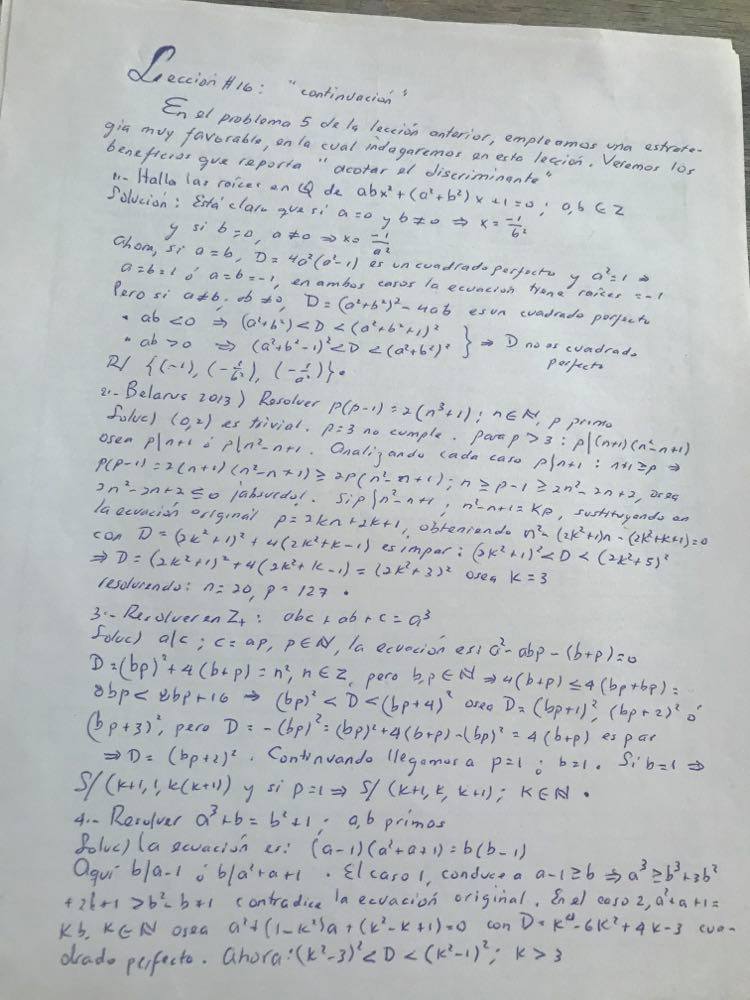 Lección #16: "continuación"
En el problema 5 de la lección anterior, empleamos una estrate-
gia muy favorable, en la cual indagaremos en esta lección. Veremos los
beneficios que reporta "acotar el discriminante"
1.- Halla las raíces en Q de abx² + (a²+b²)x + 1 = 0 ; a,b ∈ Z
Solución: Está claro que si a=0 y b≠0 ⇒ x = -1/b²
y si b=0, a≠0 ⇒ x = -1/a²
Ahora, si a=b, D = 4a²(a²-1) es un cuadrado perfecto y a²=1 ⇒
a=b=1 ó a=b=-1, en ambos casos la ecuación tiene raíces = -1
Pero si a≠b, ab≠0, D = (a²+b²)² - 4ab es un cuadrado perfecto
• ab<0 ⇒ (a²+b²)<D<(a²+b²+1)²
• ab>0 ⇒ (a²+b²-1)²<D<(a²+b²)² } ⇒ D no es cuadrado
perfecto
R/ {(-1), (-1/b²), (-1/a²)}.
2.- Belarus 2013) Resolver p(p-1) = 2(n³+1) ; n∈N, p primo
Soluc) (0,2) es trivial. p=3 no cumple. para p>3 : p|(n+1)(n²-n+1)
osea p|n+1 ó p|n²-n+1. Analizando cada caso p|n+1 : n+1≥p ⇒
p(p-1) = 2(n+1)(n²-n+1) ≥ 2p(n²-n+1) ; n ≥ p-1 ≥ 2n²-2n+2, osea
2n²-2n+2 ≤ 0 ¡absurdo!. Si p|n²-n+1, n²-n+1 = Kp, sustituyendo en
la ecuación original p = 2kn+2k+1, obteniendo n²-(2k²+1)n-(2k²+k+1)=0
con D = (2k²+1)² + 4(2k²+k-1) es impar: (2k²+1)² < D < (2k²+5)²
⇒ D = (2k²+1)² + 4(2k²+k-1) = (2k²+3)² osea k=3
resolviendo: n=20, p=127.
3.- Resolver en Z₊ : abc+ab+c = a³
Soluc) a|c ; c=ap, p∈N, la ecuación es: a²-abp-(b+p)=0
D = (bp)²+4(b+p) = n², n∈Z, pero b,p∈N ⇒ 4(b+p) ≤ 4(bp+bp) =
8bp < 8bp+16 ⇒ (bp)² < D < (bp+4)² osea D = (bp+1)², (bp+2)² ó
(bp+3)², pero D-(bp)² = (bp)²+4(b+p)-(bp)² = 4(b+p) es par
⇒ D = (bp+2)². Continuando llegamos a p=1 ó b=1. Si b=1 ⇒
S/ (k+1,1,k(k+1)) y si p=1 ⇒ S/ (k+1,k,k+1) ; K∈N.
4.- Resolver a³+b = b²+1 ; a,b primos
Soluc) la ecuación es: (a-1)(a²+a+1) = b(b-1)
Aquí b|a-1 ó b|a²+a+1. El caso 1, conduce a a-1≥b ⇒ a³ ≥ b³+3b²
+2b+1 > b²-b+1 contradice la ecuación original. En el caso 2, a²+a+1=
Kb, K∈N osea a²+(1-K²)a+(K²-K+1)=0 con D = K⁴-6K²+4K-3 cua-
drado perfecto. Ahora: (K²-3)² < D < (K²-1)² ; K>3